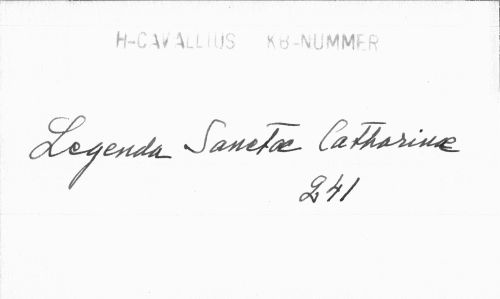 H-CAVALLIUS KB-NUMMER
Legenda Sanctæ Catharinæ
241